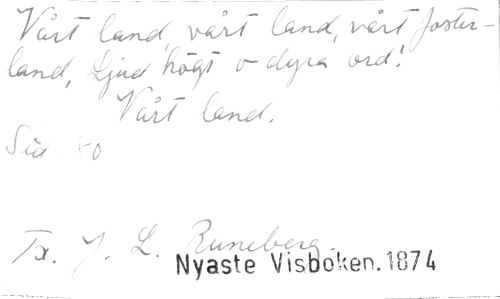 Vårt land, vårt land, vårt foster-
land, Ljud högt o dyra ord!
Vårt land.
Sid 80
Tx. J. L. Runeberg.
Nyaste Visboken. 1874